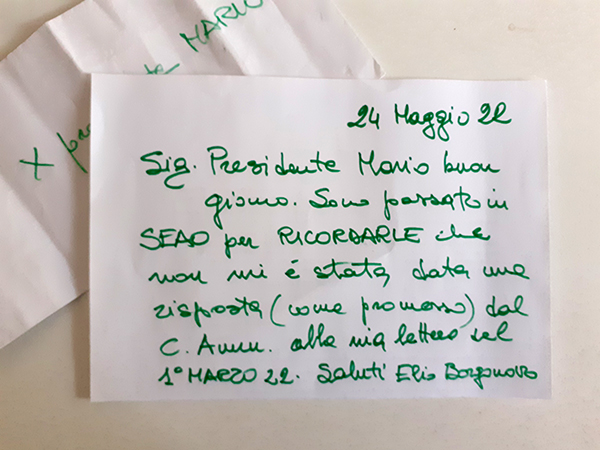 X pre te MARIO
24 Maggio 22
Sig. Presidente Mario buon
giorno. Sono passato in
SEAO per RICORDARLE che
non mi è stata data una
risposta (come promesso) dal
C. Amm. alla mia lettera del
1° MARZO 22. Saluti Elio Borgonovo